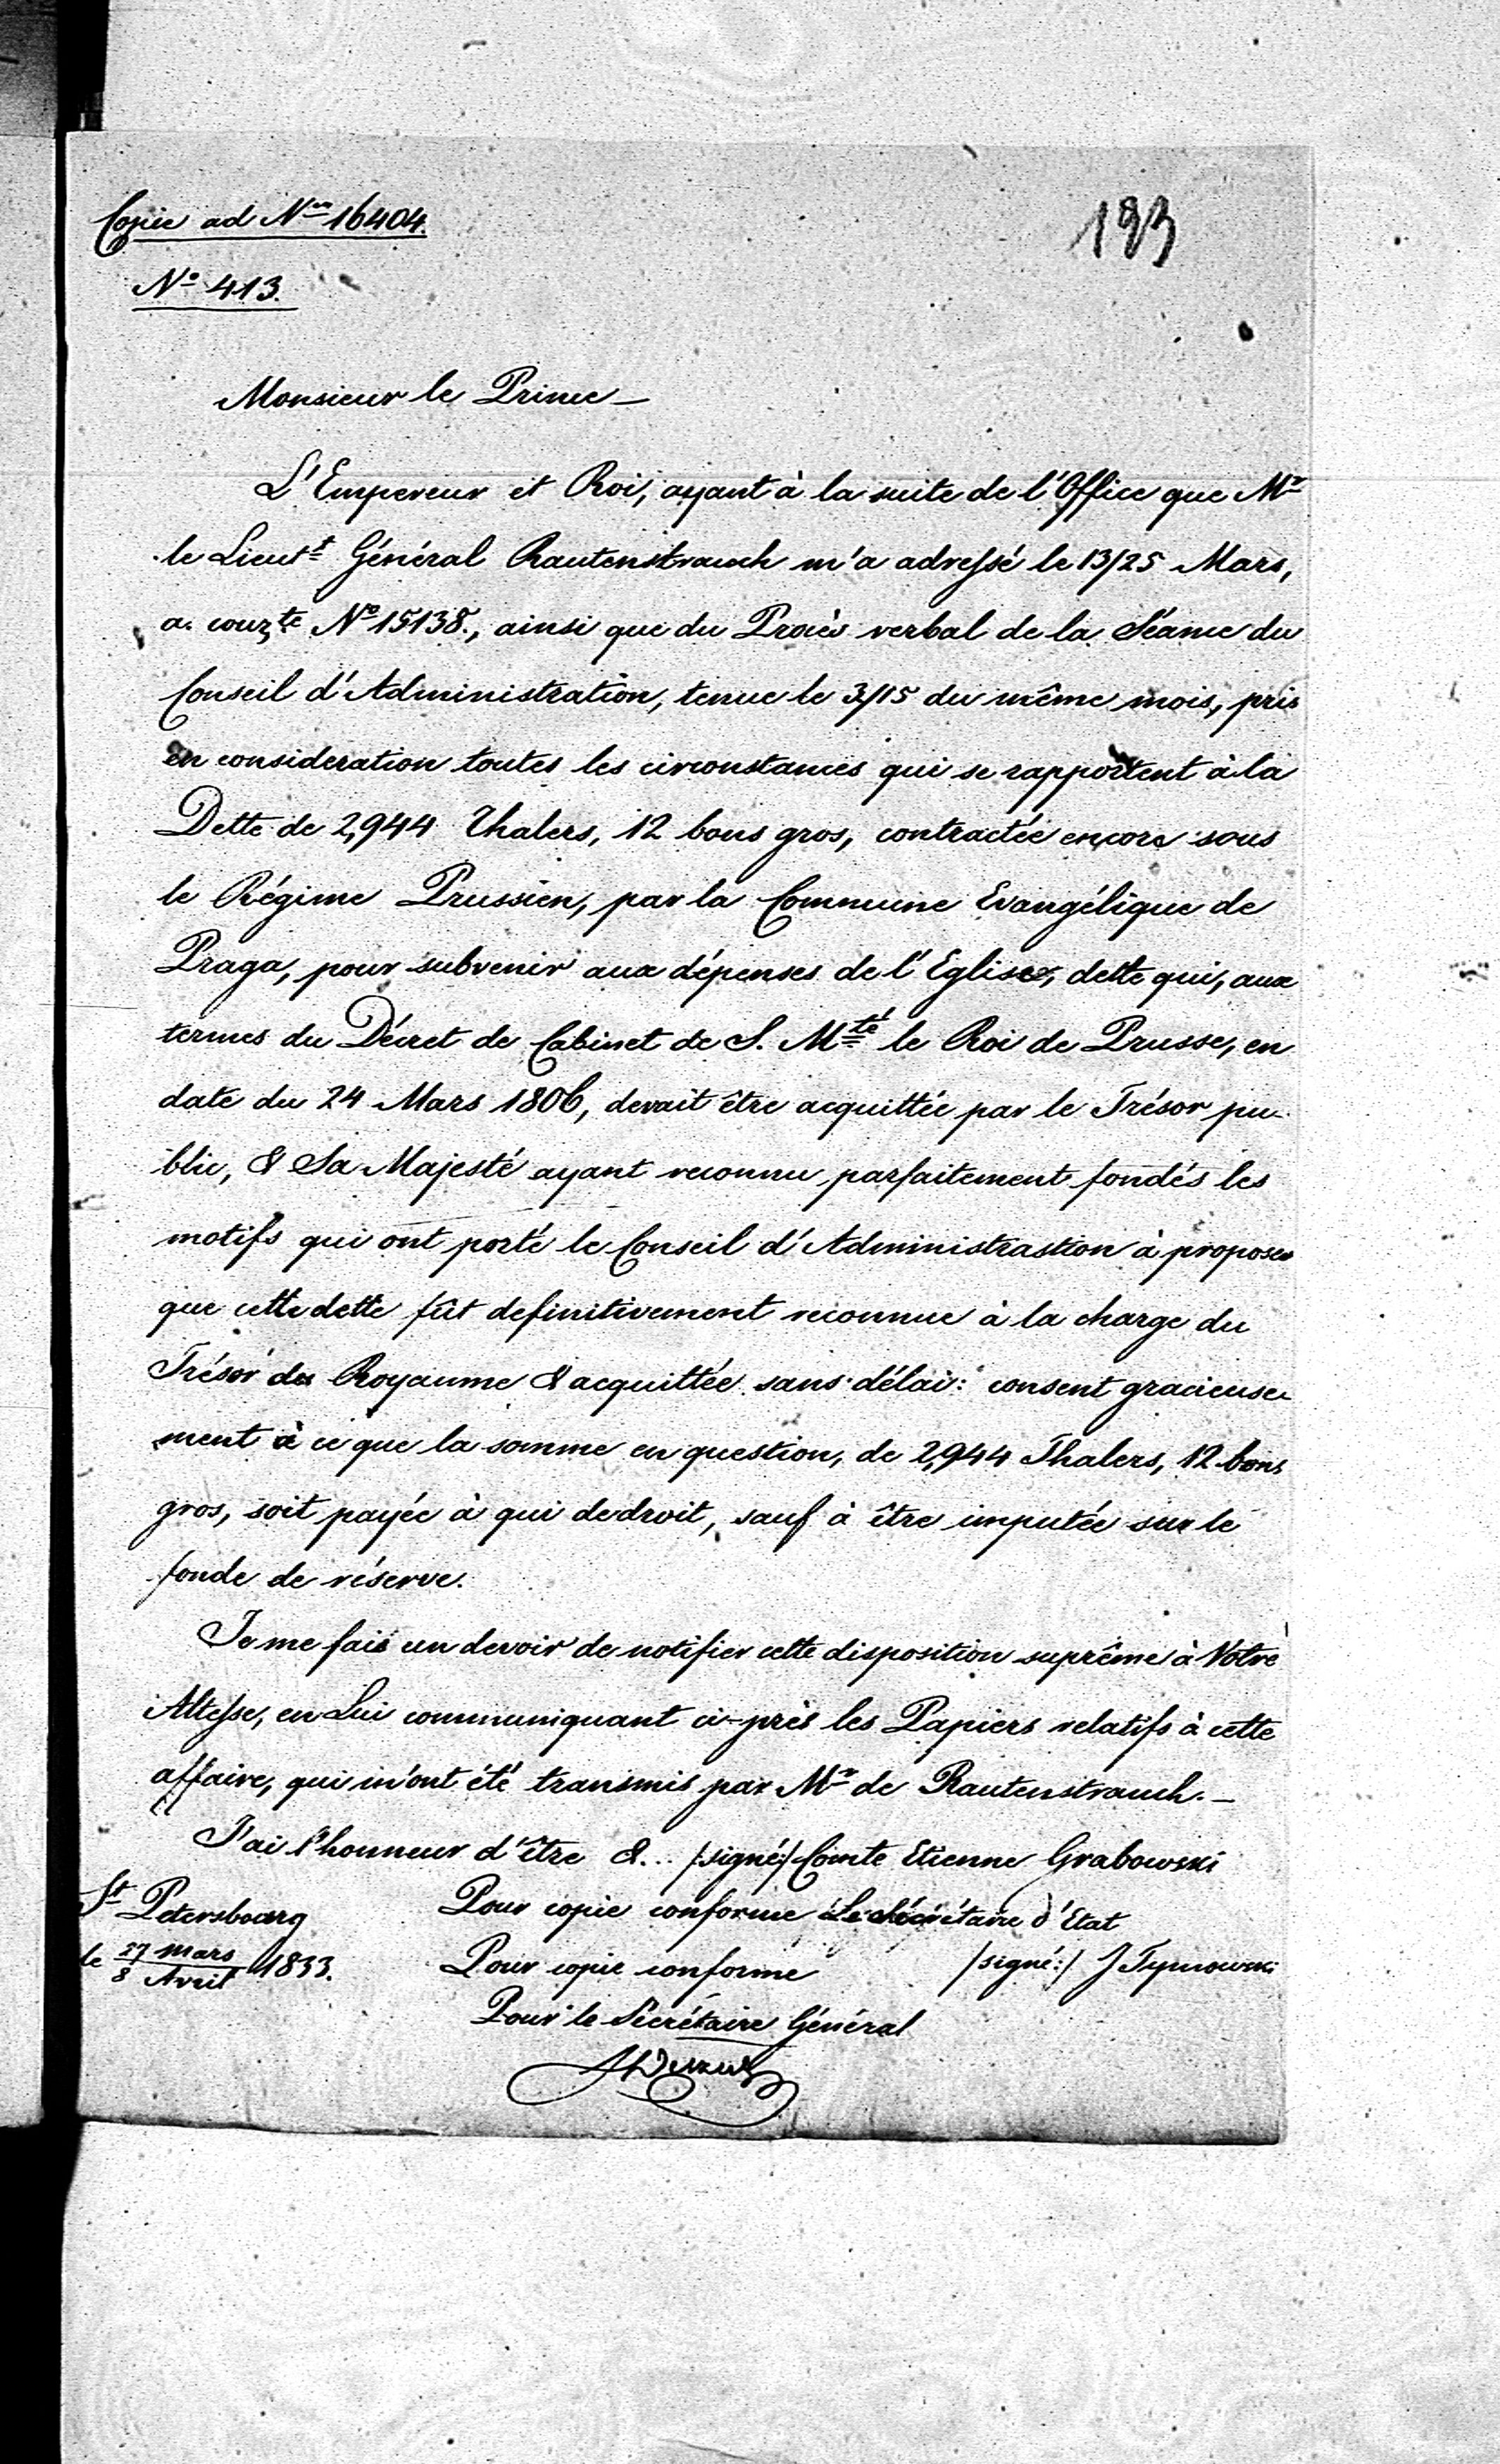 Copie ad Nrum 16404.
193
No 413.
Monsieur le Prince —
L'Empereur et Roi, ayant à la suite de l'Office que Mr
le Lieutt Général Rautenstrauch m'a adressé le 13/25 Mars,
a. courte No 15138., ainsi que du Procès verbal de la Séance du
Conseil d'Administration, tenue le 3/15 du même mois, pris
en consideration toutes les circonstances qui se rapportent à la
Dette de 2,944 Thalers, 12 bons gros, contractée encore sous
le Régime Prussien, par la Commune Evangélique de
Praga, pour subvenir aux dépenses de l'Eglise, dette qui, aux
termes du Décret de Cabinet de S. Mté le Roi de Prusse, en
date du 24 Mars 1806, devait être acquittée par le Trésor pu-
blic, & Sa Majesté ayant reconnu parfaitement fondés les
motifs qui ont porté le Conseil d'Administrastion à proposer
que cette dette fût definitivement reconnue à la charge du
Trésor du Royaume & acquittée sans délai: consent gracieuse-
ment à ce que la somme en question, de 2,944 Thalers, 12 bons
gros, soit payée à qui de droit, sauf à être imputée sur le
fonds de réserve.
Je me fais un devoir de notifier cette disposition suprême à Votre
Altesse, en Lui communiquant ci-près les Papiers relatifs à cette
affaire, qui m'ont été transmis par Mr de Rautenstrauch. —
J'ai l'honneur d'être &... /signé:/ Comte Etienne Grabowski
St Petersbourg
le 27 mars / 8 Avril 1833.
Pour copie conforme Le Sécrétaire d'Etat
Pour copie conforme /signé:/ J Tymowski
Pour le Secrétaire Général